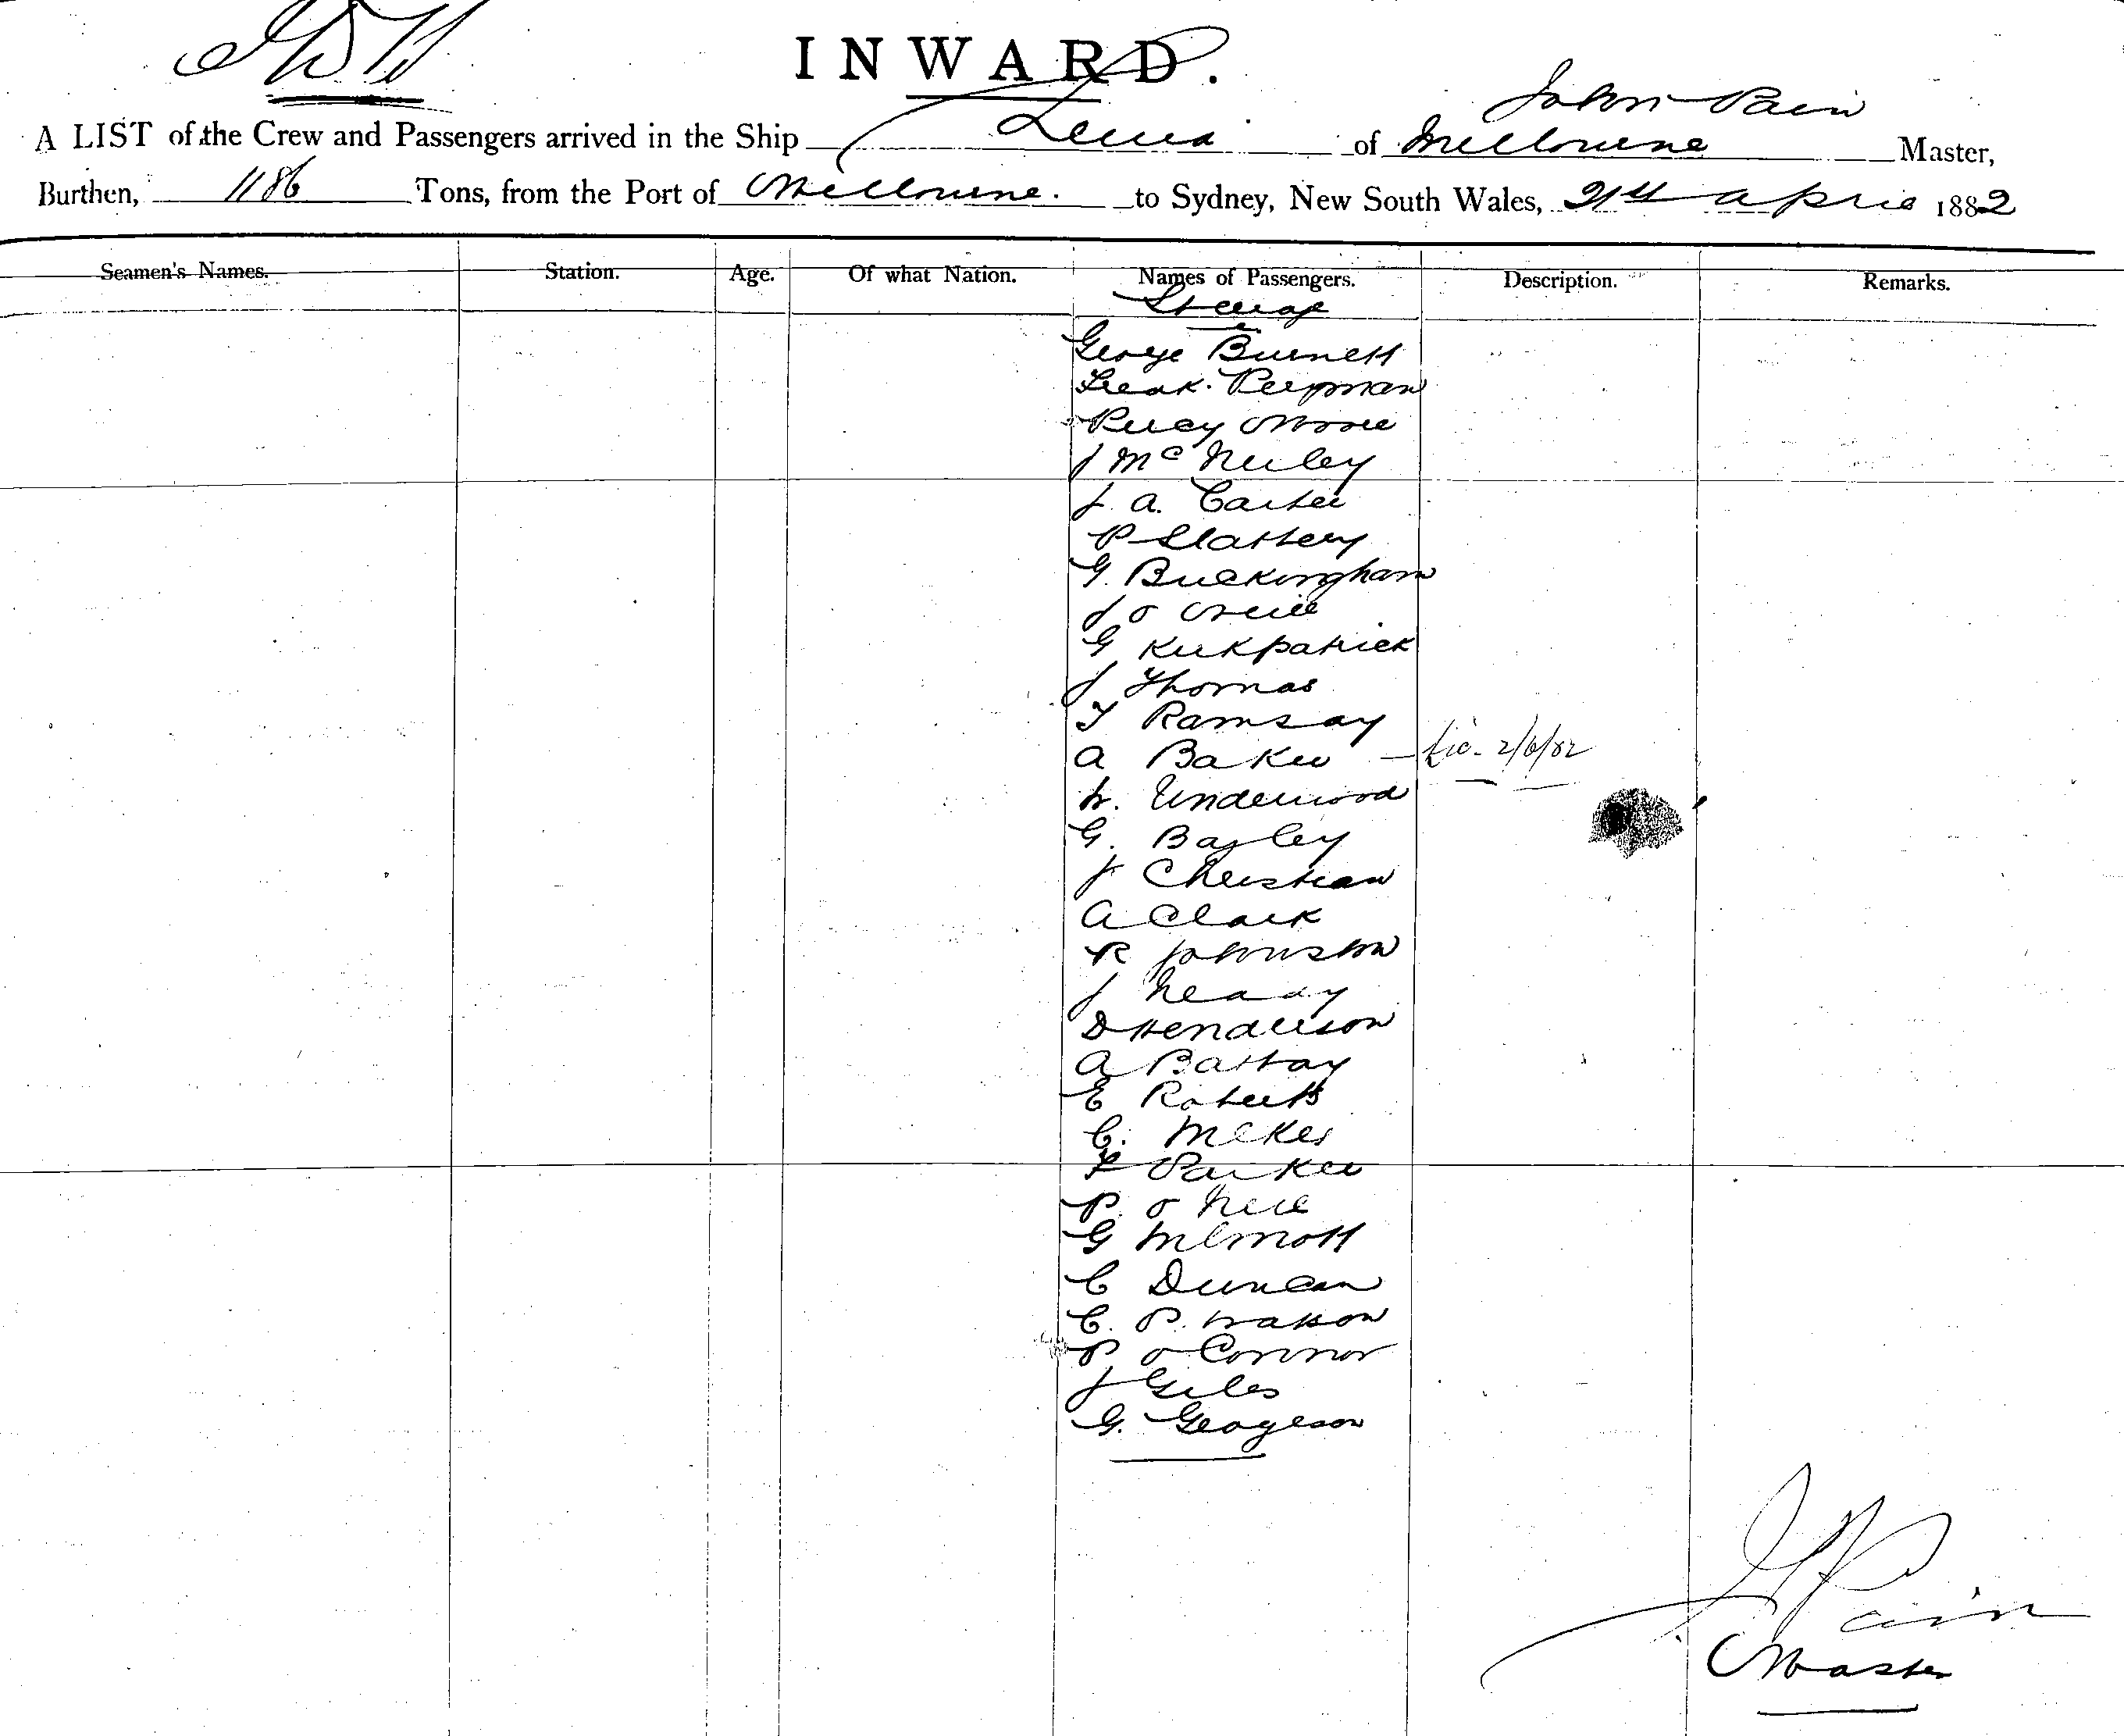 INWARD.
John Pain
A LIST of the Crew and Passengers arrived in the Ship of Melbourne Master,
Burthen, 1186 Tons, from the Port of Melbourne. to Sydney, New South Wales, 21st April 1882
Seamen's Names. Station. Age. Of what Nation. Names of Passengers. Description. Remarks.
Steerage
George Burnett
Percy Moore
J Mc
J. A. Carter
P Slattery
G. Buckingham
J O Neill
G Kirkpatrick
J Thomas
T Ramsay
A Baker 2/6/82
W. Underwood
G. Bayley
J Christian
A Clark
R Johnston
J Neady
D Henderson
A Battay
E Roberts
C. McKes
F Parker
P. O Neill
G
C Duncan
C. P. Watson
P O Connor
J Giles
G. Georgeson
J Pain
Master